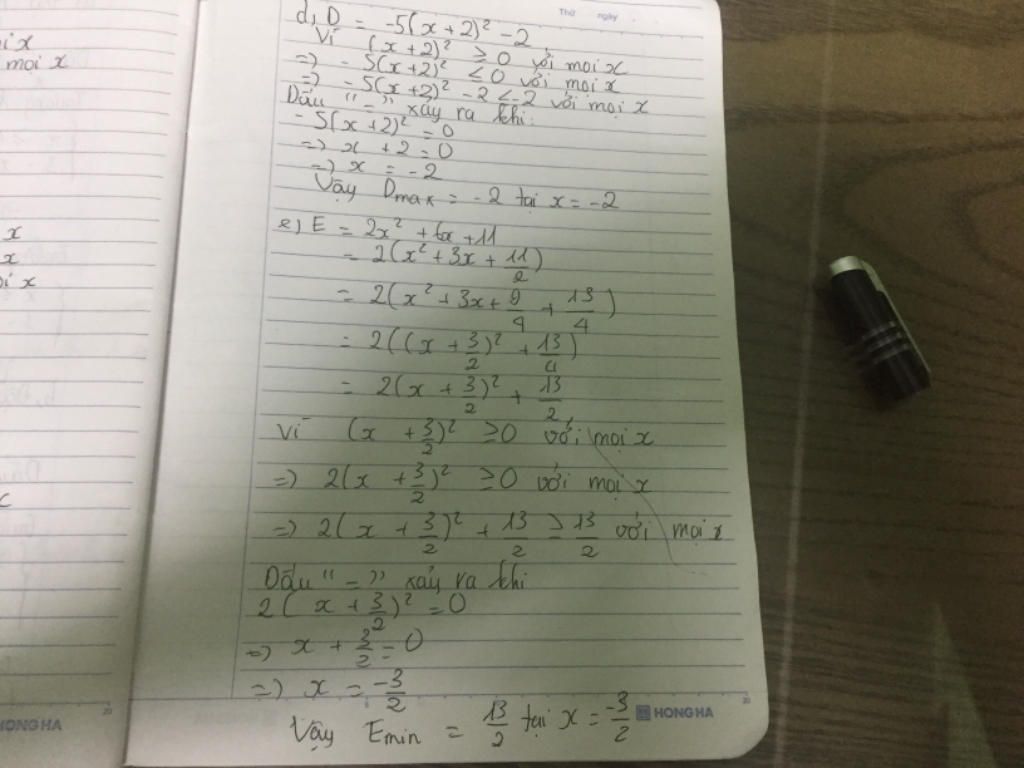 Thứ ngày
d, D = -5(x+2)² -2
Vì (x+2)² ≥ 0 với mọi x
=> -5(x+2)² ≤ 0 với mọi x
=> -5(x+2)² -2 ≤ -2 với mọi x
Dấu "=" xảy ra khi:
-5(x+2)² = 0
=> x + 2 = 0
=> x = -2
Vậy Dmax = -2 tại x = -2
e, E = 2x² + 6x + 11
= 2(x² + 3x + 11/2)
= 2(x² + 3x + 9/4 + 13/4)
= 2((x + 3/2)² + 13/4)
= 2(x + 3/2)² + 13/2
Vì (x + 3/2)² ≥ 0 với mọi x
=> 2(x + 3/2)² ≥ 0 với mọi x
=> 2(x + 3/2)² + 13/2 ≥ 13/2 với mọi x
Dấu "=" xảy ra khi
2(x + 3/2)² = 0
=> x + 3/2 = 0
=> x = -3/2
Vậy Emin = 13/2 tại x = -3/2
HONG HA
mọi x
x
x
x
HONG HA